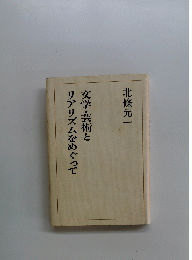 北條元一
文学・芸術と
リアリズムをめぐって